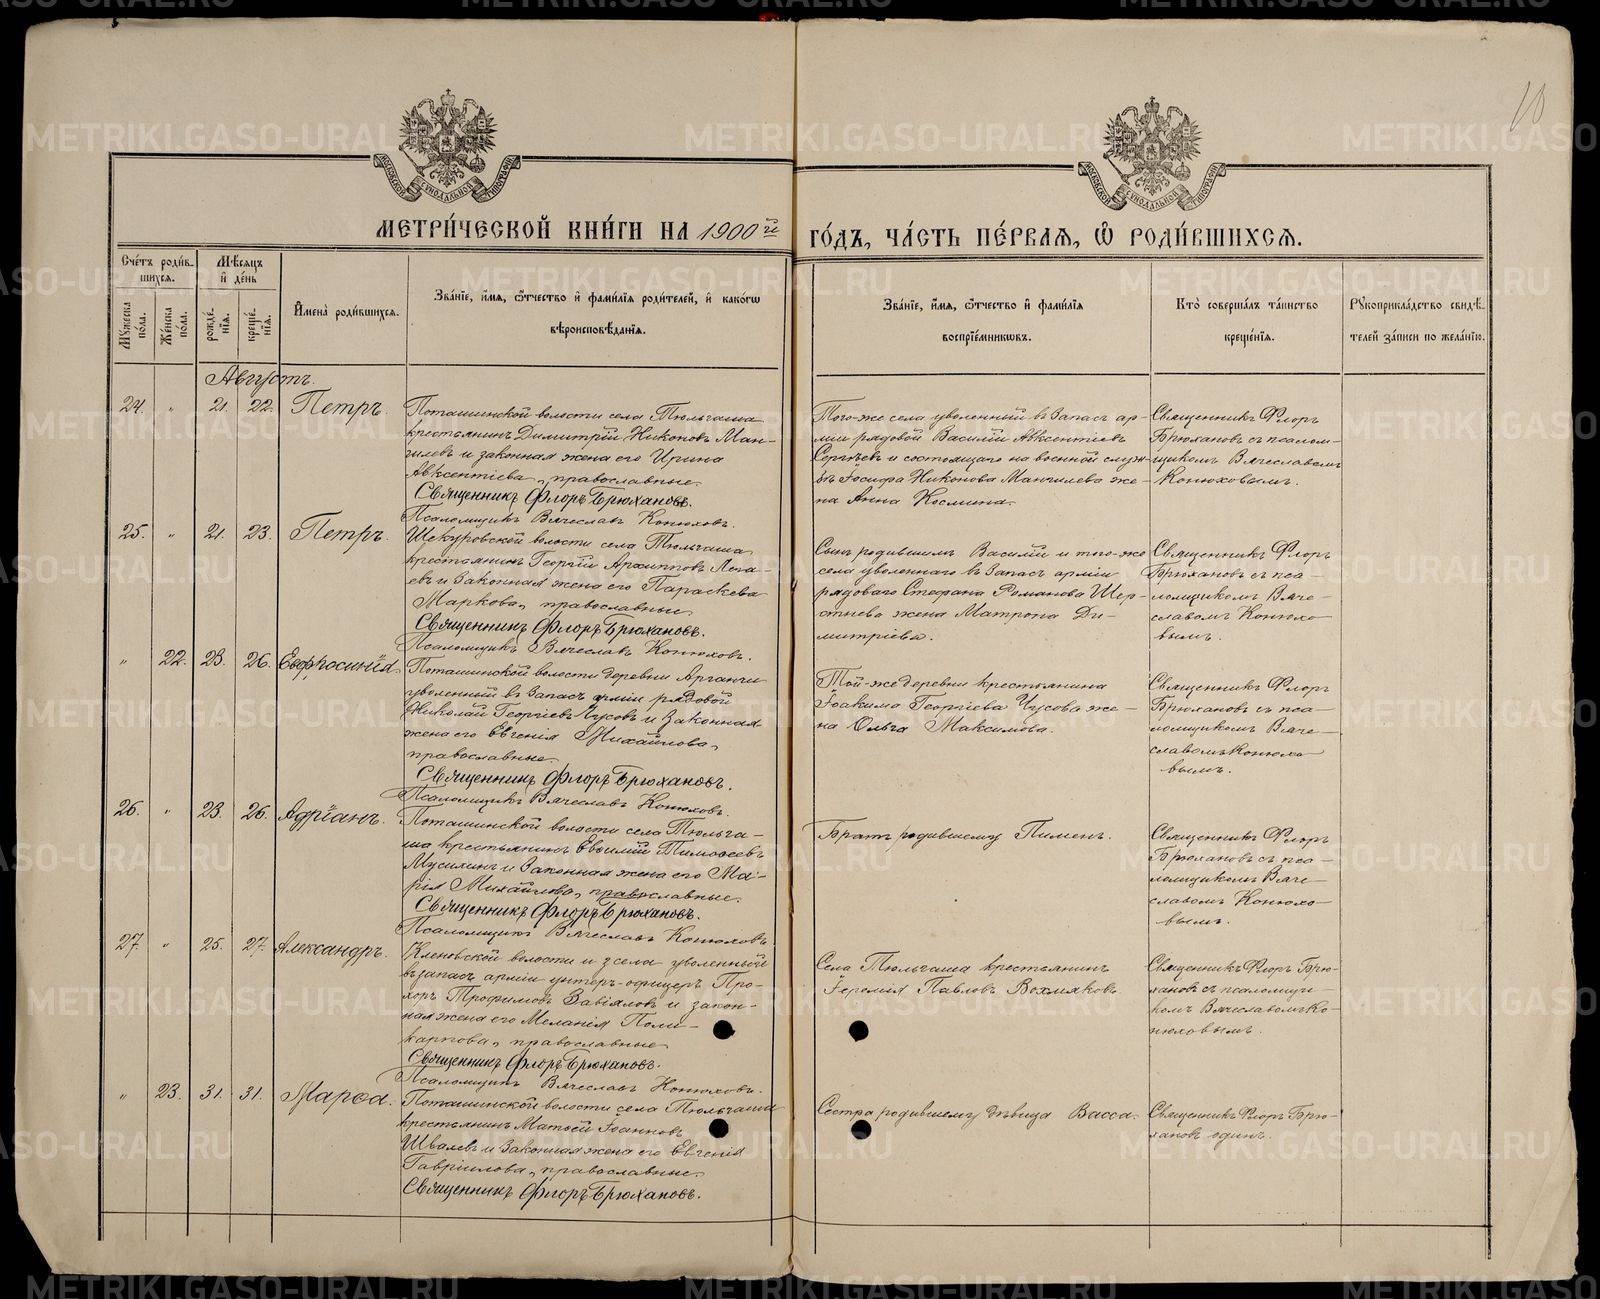 METRIKI.GASO-URAL.RU
10
МОСКОВСКОЙ СУНОДАЛЬНОЙ ТИПОГРАФІИ
МОСКОВСКОЙ СУНОДАЛЬНОЙ ТИПОГРАФІИ
МЕТРИ́ЧЕСКОЙ КНИ́ГИ НА 1900й ГО́ДЪ, ЧА́СТЬ ПЕ́РВАѦ, Ѡ҆ РОДИ́ВШИХСѦ.
Сче́тъ роди́в-
шихся.
Мѣсяцъ
и де́нь
И҆мена̀ роди́вшихся.
Зва́нїе, и҆́мя, ѻ҆́тчество и҆ фами́лїя роди́телей, и҆ како́гѡ
вѣроисповѣ́данїя.
Зва́нїе, и҆́мя, ѻ҆́тчество и҆ фами́лїя
воспрїе́мникѡвъ.
Кто̀ соверша́лъ та́инство
креще́нїя.
Рꙋкоприкла́дство свидѣ́-
телей за́писи по жела́нїю.
Мꙋ́жеска
по́ла.
Же́нска
по́ла.
рожде́-
нїя.
креще́-
нїя.
Августъ.
24. " 21. 22. Петръ.
Поташинской волости села Тюльгаша
крестьянинъ Димитрій Никоновъ Ман-
гилевъ и законная жена его Ирина
Авксентіева, православные.
Священникъ Флоръ Брюхановъ.
Псаломщикъ Вячеславъ Конюховъ.
Того-же села уволенный въ запасъ ар-
міи рядовой Василій Авксентіевъ
Сергѣевъ и состоящаго на военной служ-
бѣ Іосифа Никонова Мангилева же-
на Анна Космина.
Священникъ Флоръ
Брюхановъ съ псалом-
щикомъ Вячеславомъ
Конюховымъ.
25. " 21. 23. Петръ.
волости села Тюльгаша
крестьянинъ Георгій Архипповъ
и законная жена его Параскева
Маркова, православные.
Священникъ Флоръ Брюхановъ.
Псаломщикъ Вячеславъ Конюховъ.
Сынъ родившимъ Василій и того-же
села уволеннаго въ запасъ арміи
рядоваго Стефана Романова Шер-
стнева жена Матрона Ди-
митріева.
Священникъ Флоръ
Брюхановъ съ пса-
ломщикомъ Вяче-
славомъ Конюхо-
вымъ.
" 22. 23. 26. Евфросинія.
Поташинской волости деревни Артанчи
уволенный въ запасъ арміи рядовой
Николай Георгіевъ Чусовъ и законная
жена его Евгенія Михайлова,
православные.
Священникъ Флоръ Брюхановъ.
Псаломщикъ Вячеславъ Конюховъ.
Той-же деревни крестьянина
Іоакима Георгіева Чусова же-
на Ольга Максимова.
Священникъ Флоръ
Брюхановъ съ пса-
ломщикомъ Вяче-
славомъ Конюхо-
вымъ.
26. " 23. 26. Адріанъ.
Поташинской волости села Тюльга-
ша крестьянинъ Евѳимій Тимоѳеевъ
Мусихинъ и законная жена его Ма-
рія Михайлова, православные.
Священникъ Флоръ Брюхановъ.
Псаломщикъ Вячеславъ Конюховъ.
Братъ родившему Пименъ.
Священникъ Флоръ
Брюхановъ съ пса-
ломщикомъ Вяче-
славомъ Конюхо-
вымъ.
27. " 25. 27. Александръ.
Кленовской волости и села уволенный
въ запасъ арміи унтеръ-офицеръ Про-
хоръ Трофимовъ Завіяловъ и закон-
ная жена его Меланія Поли-
карпова, православные.
Священникъ Флоръ Брюхановъ.
Псаломщикъ Вячеславъ Конюховъ.
Села Тюльгаша крестьянинъ
Іеремія Павловъ Вохмяковъ.
Священникъ Флоръ Брю-
хановъ съ псаломщи-
комъ Вячеславомъ Ко-
нюховымъ.
" 23. 31. 31. Марѳа.
Поташинской волости села Тюльгаша
крестьянинъ Матѳей Іоанновъ
Шваревъ и законная жена его Евгенія
Гавріилова, православные.
Священникъ Флоръ Брюхановъ.
Сестра родившему дѣвица Васса.
Священникъ Флоръ Брю-
хановъ одинъ.